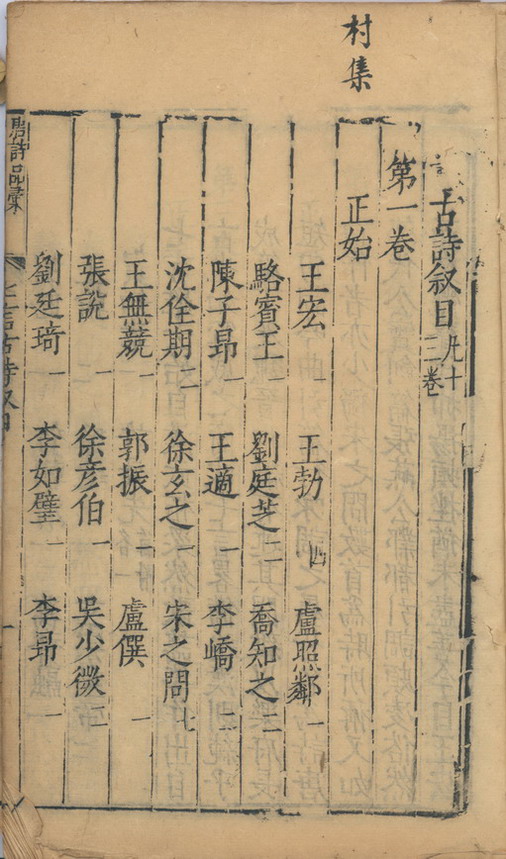 村集
古詩叙目 凡十三卷
第一卷
正始
王宏 一 王勃 四 盧照鄰 一
駱賓王 一 劉庭芝 二 喬知之 二
陳子昂 一 王適 一 李嶠 二
沈佺期 二 徐玄之 一 宋之問 七
王無競 一 郭振 一 盧僎 一
張說 一 徐彥伯 一 吳少微 二
劉廷琦 一 李如璧 一 李昂 一
唐詩品彙
古詩叙目